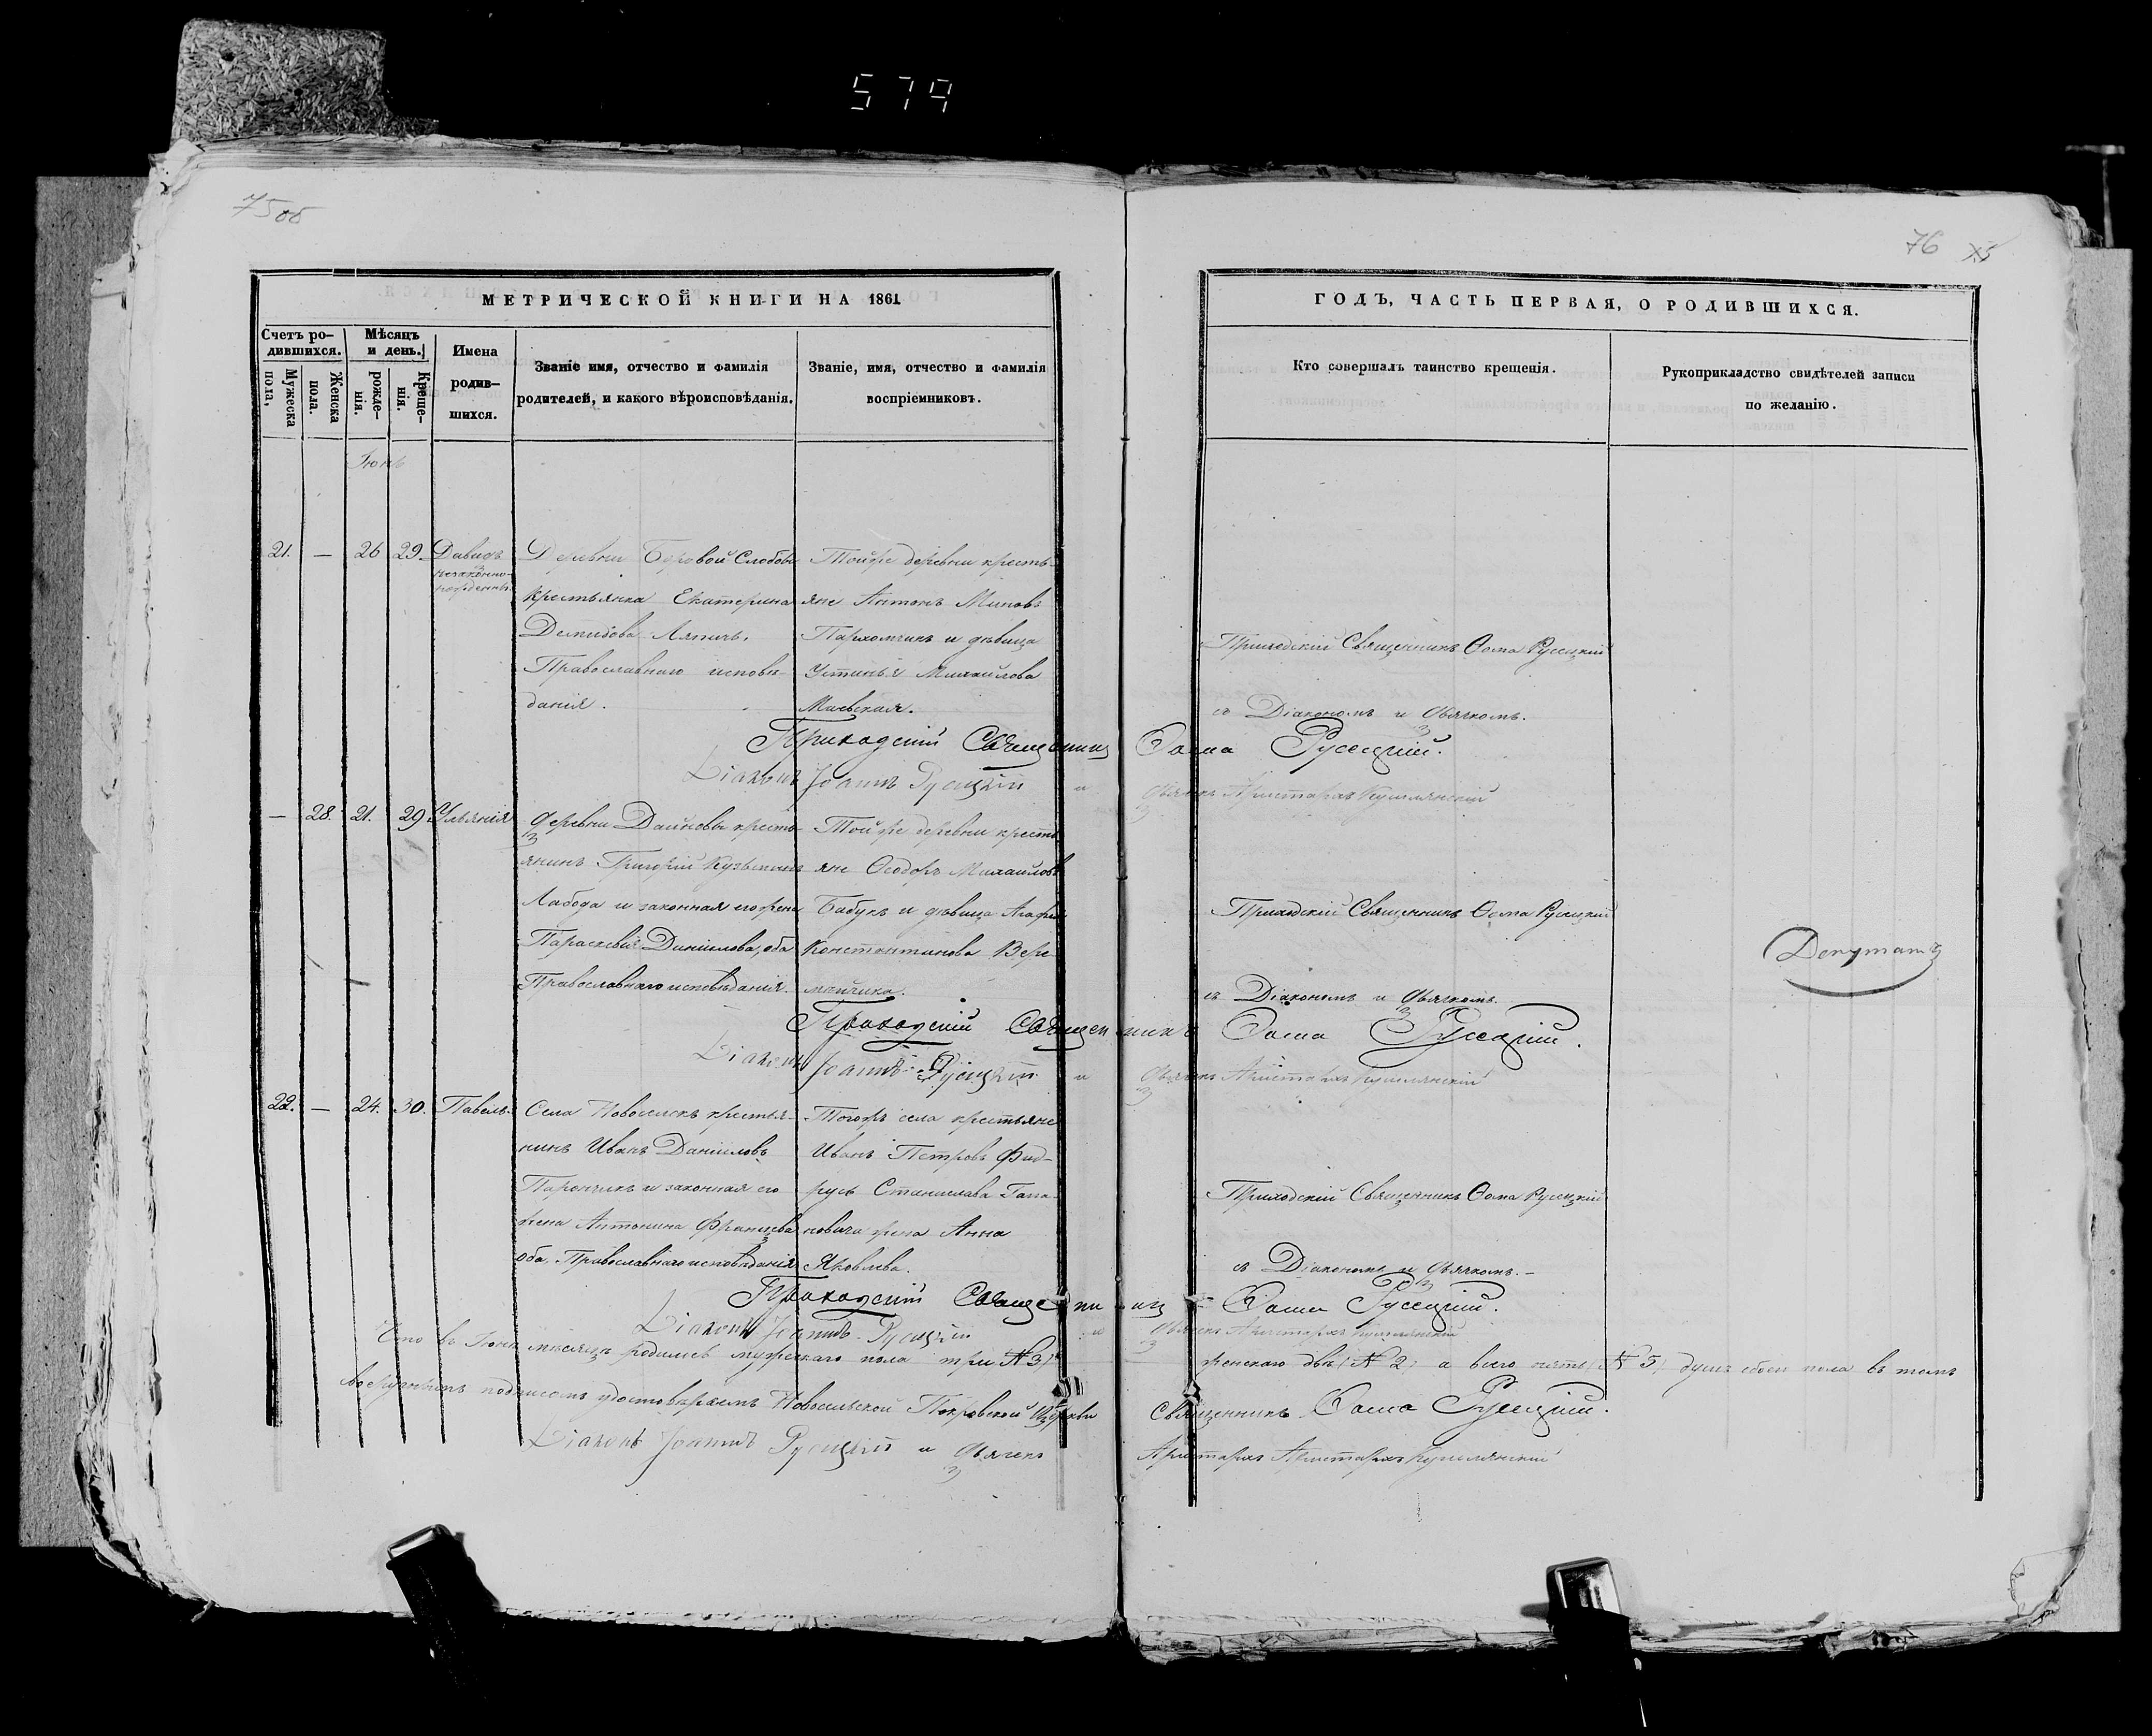 579
75 об
76
МЕТРИЧЕСКОЙ КНИГИ НА 1861
ГОДЪ, ЧАСТЬ ПЕРВАЯ, О РОДИВШИХСЯ.
Счетъ ро-
дившихся.
Мѣсяцъ
и день.
Мужеска
пола,
Женска
пола.
рожде-
нія.
Креще-
нія.
Имена
родив-
шихся.
Званіе имя, отчество и фамилія
родителей, и какого вѣроисповѣданія.
Званіе, имя, отчество и фамилія
воспріемниковъ.
Кто совершалъ таинство крещенія.
Рукоприкладство свидѣтелей записи
по желанію.
Іюнь
21. — 26 29. Давидъ
незаконно-
рожденный
Деревни Боровой Слободы
крестьянка Екатерина
Демидова Ляпичъ.
Православнаго исповѣ-
данія.
Тойже деревни кресть-
яне Антонъ Миновъ
Пархомчикъ и дѣвица
Устинья Михайлова
Маевская.
Приходскій Священникъ Ѳома Русецкій
съ Діакономъ и Дьячкомъ.
Приходскій Священникъ Ѳома Русецкій.
Діаконъ Іоаннъ Русецкій и Дьячекъ Аристархъ
— 28. 21. 29 Ульянія
Деревни Дайновы кресть-
янинъ Григорій Кузьминъ
Лабода и законная его жена
Параскевія Даніилова, оба
Православнаго исповѣданія.
Тойже деревни кресть-
яне Ѳеодоръ Михайловъ
Бабукъ и дѣвица Агафія
Константинова Вере-
мейчика.
Приходскій Священникъ Ѳома Русецкій
съ Діакономъ и Дьячкомъ.
Депутатъ
Приходскій Священникъ Ѳома Русецкій.
Діаконъ Іоаннъ Русецкій и Дьячекъ Аристархъ
22. — 24. 30. Павелъ.
Села Новоселокъ крестья-
нинъ Иванъ Даніиловъ
Парончикъ и законная его
жена Антонина Францева
оба Православнаго исповѣданія
Тогожъ села крестьяне
Иванъ Петровъ Фид-
русь Станислава Гапа-
новича жена Анна
Яковлева.
Приходскій Священникъ Ѳома Русецкій
съ Діакономъ и Дьячкомъ.-
Приходскій Священникъ Ѳома Русецкій.
Діаконъ Іоаннъ Русецкій и Дьячекъ Аристархъ
Что въ Іюнѣ мѣсяцѣ родилось мужескаго пола три (№ 3) женскаго двѣ (№ 2) а всего пять (№ 5) душъ обоего пола въ томъ
подписомъ удостовѣряемъ Новосельской Покровской Церкви Священникъ Ѳома Русецкій.
Діаконъ Іоаннъ Русецкій и Дьячекъ Аристархъ